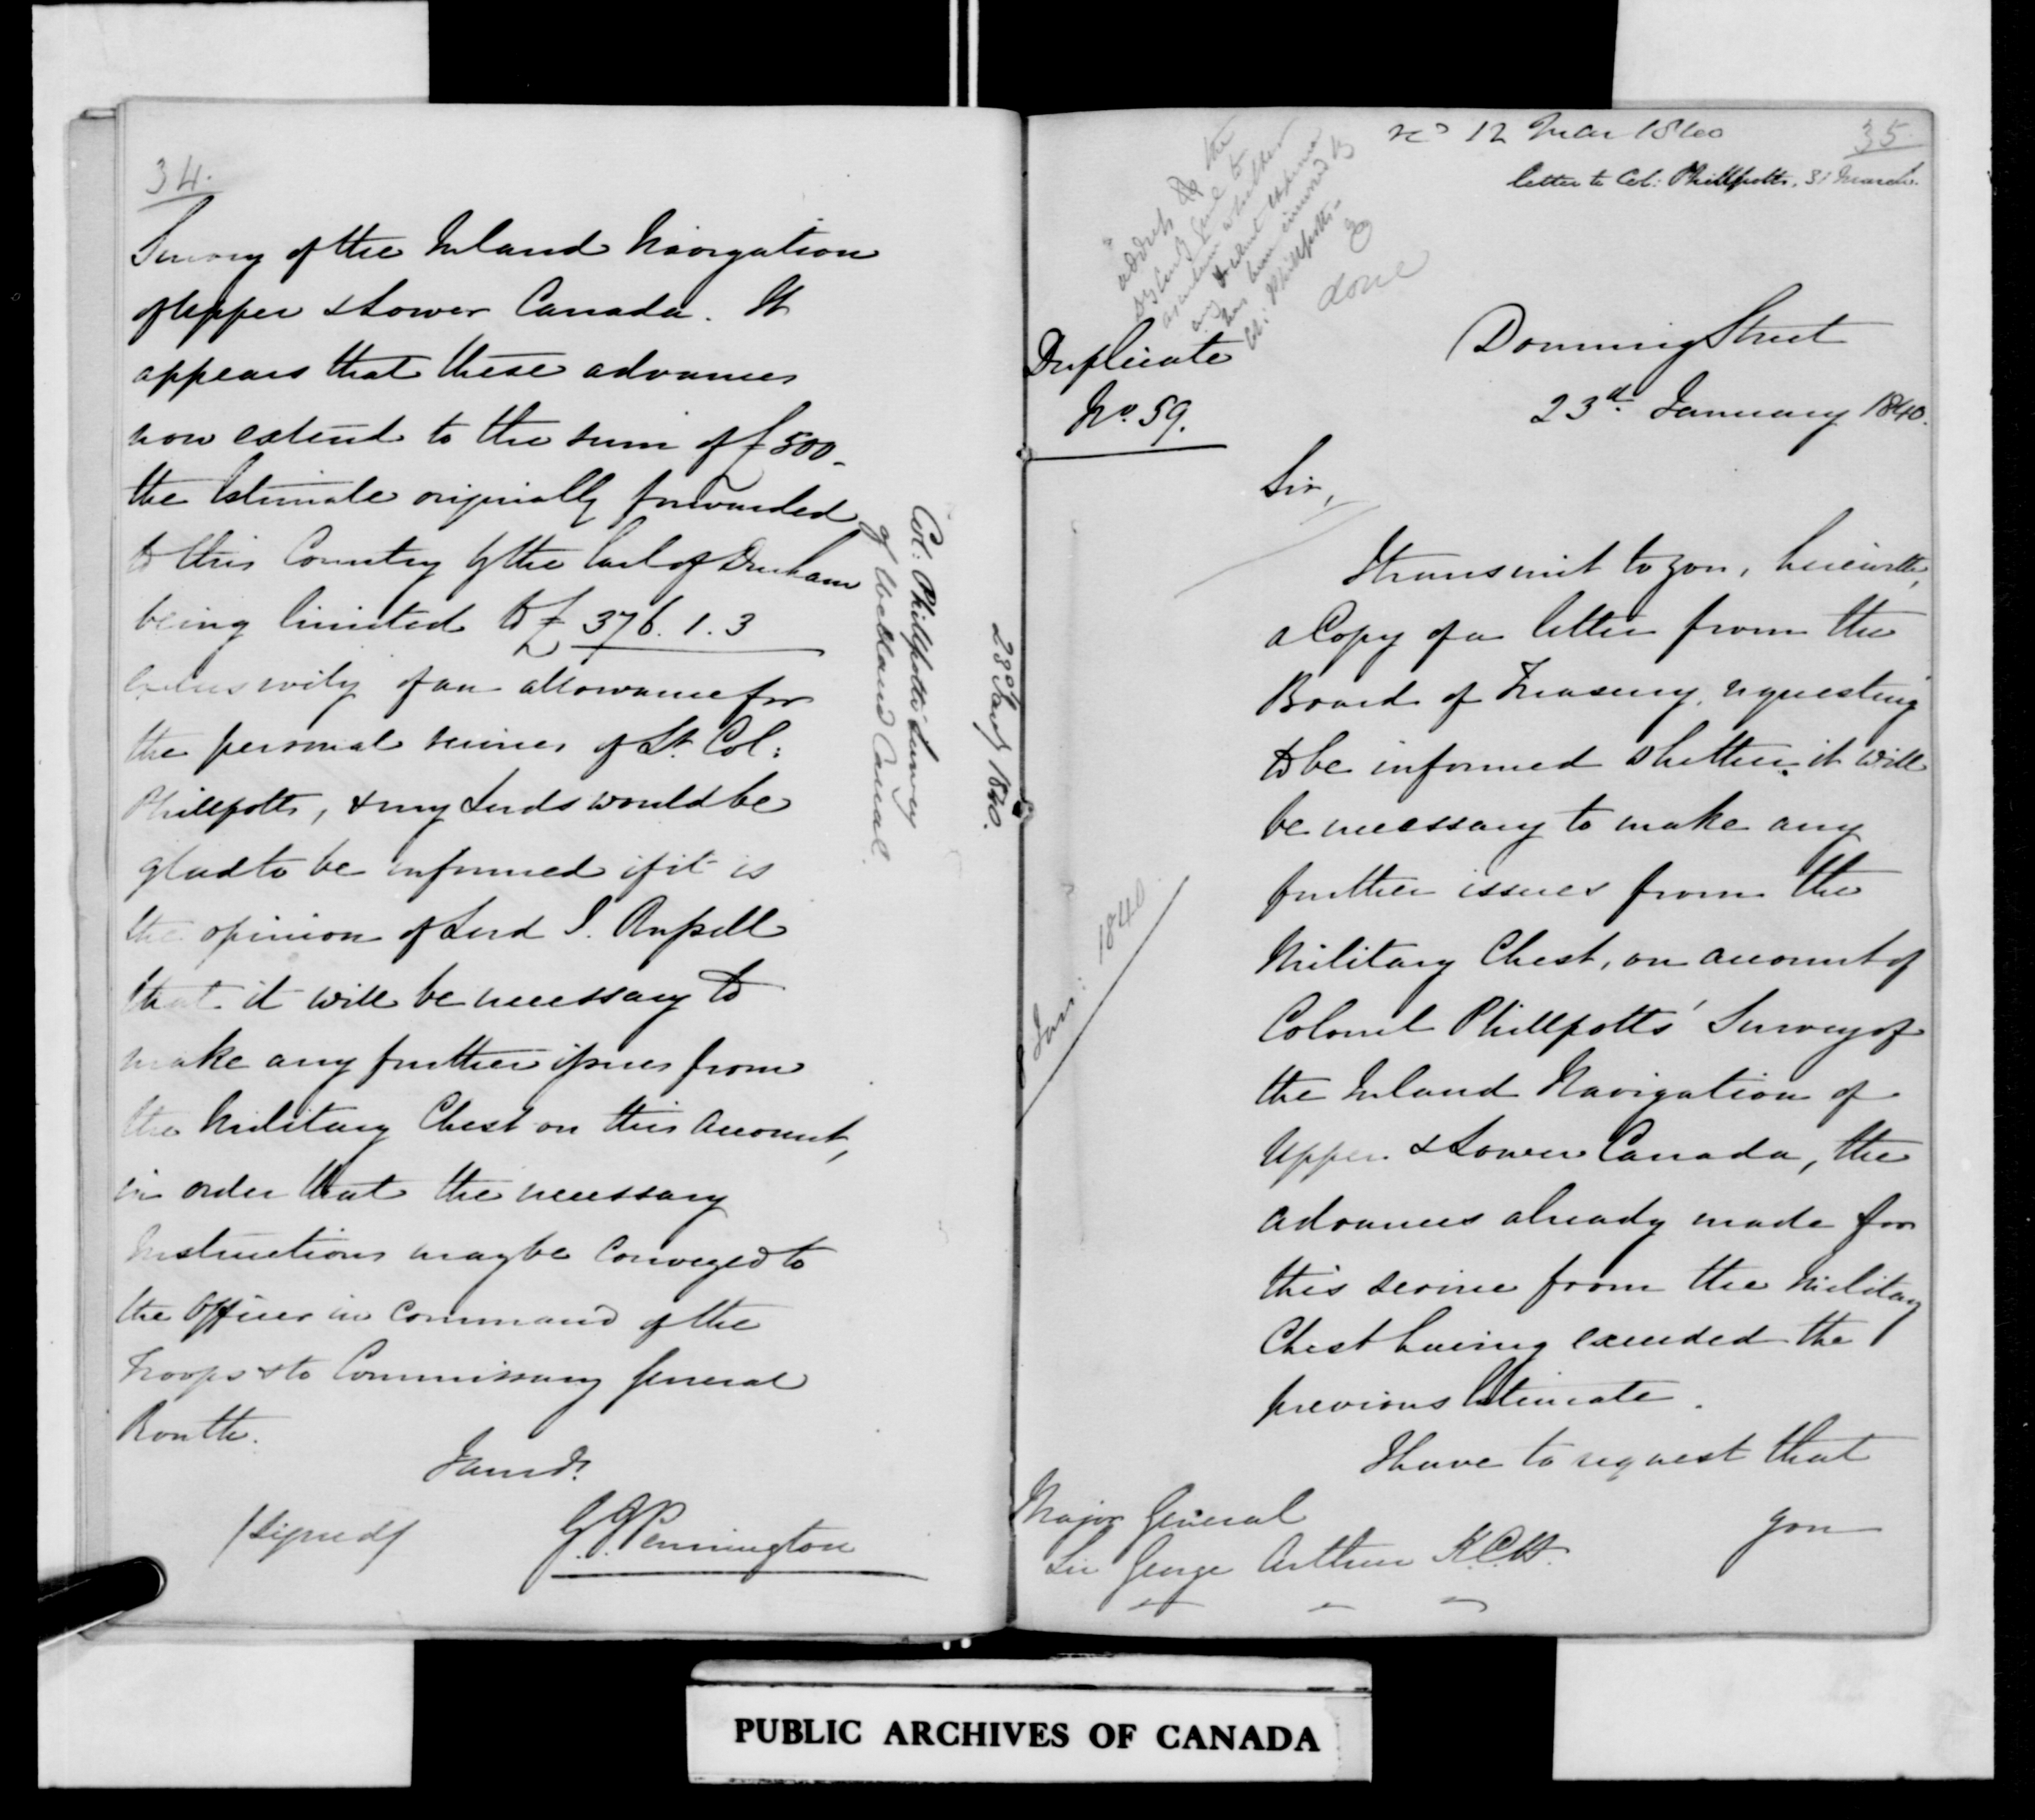 34.
Survey of the Inland Navigation
of Upper & Lower Canada. It
appears that these advances
now extend to the sum of £500_
the Estimate originally forwarded
to this Country by the Earl of Durham
being limited to £376.1.3
exclusively of an allowance for
the personal services of Lt. Col:
Phillpotts, & my Lords would be
glad to be informed if it is
the opinion of Lord J. Russell
that it will be necessary to
make any further issues from
the Military Chest on this account,
in order that the necessary
Instructions may be conveyed to
the Officer in command of the
Troops & to Commissary General
Routh.
I am &c.
/signed/ G.J. Pennington
Col: Phillpotts' Survey
of Welland Canal.
23d Jany 1840.
35
rcd 12 Mar 1840
letter to Col: Phillpotts, 31 March.
address to the
ascertain whether
any & what expense
has been incurred by
Col: Phillpotts-
done
Duplicate
No. 59.
Downing Street
23d. January 1840.
Sir,
I transmit to you, herewith,
a Copy of a letter from the
Board of Treasury, requesting
to be informed whether it will
be necessary to make any
further issues from the
Military Chest, on account of
Colonel Phillpotts' Survey of
the Inland Navigation of
Upper & Lower Canada, the
advances already made for
this service from the Military
Chest having exceeded the
previous Estimate.
I have to request that
you
Major General
Sir George Arthur K.C.H.
Jan: 1840
PUBLIC ARCHIVES OF CANADA